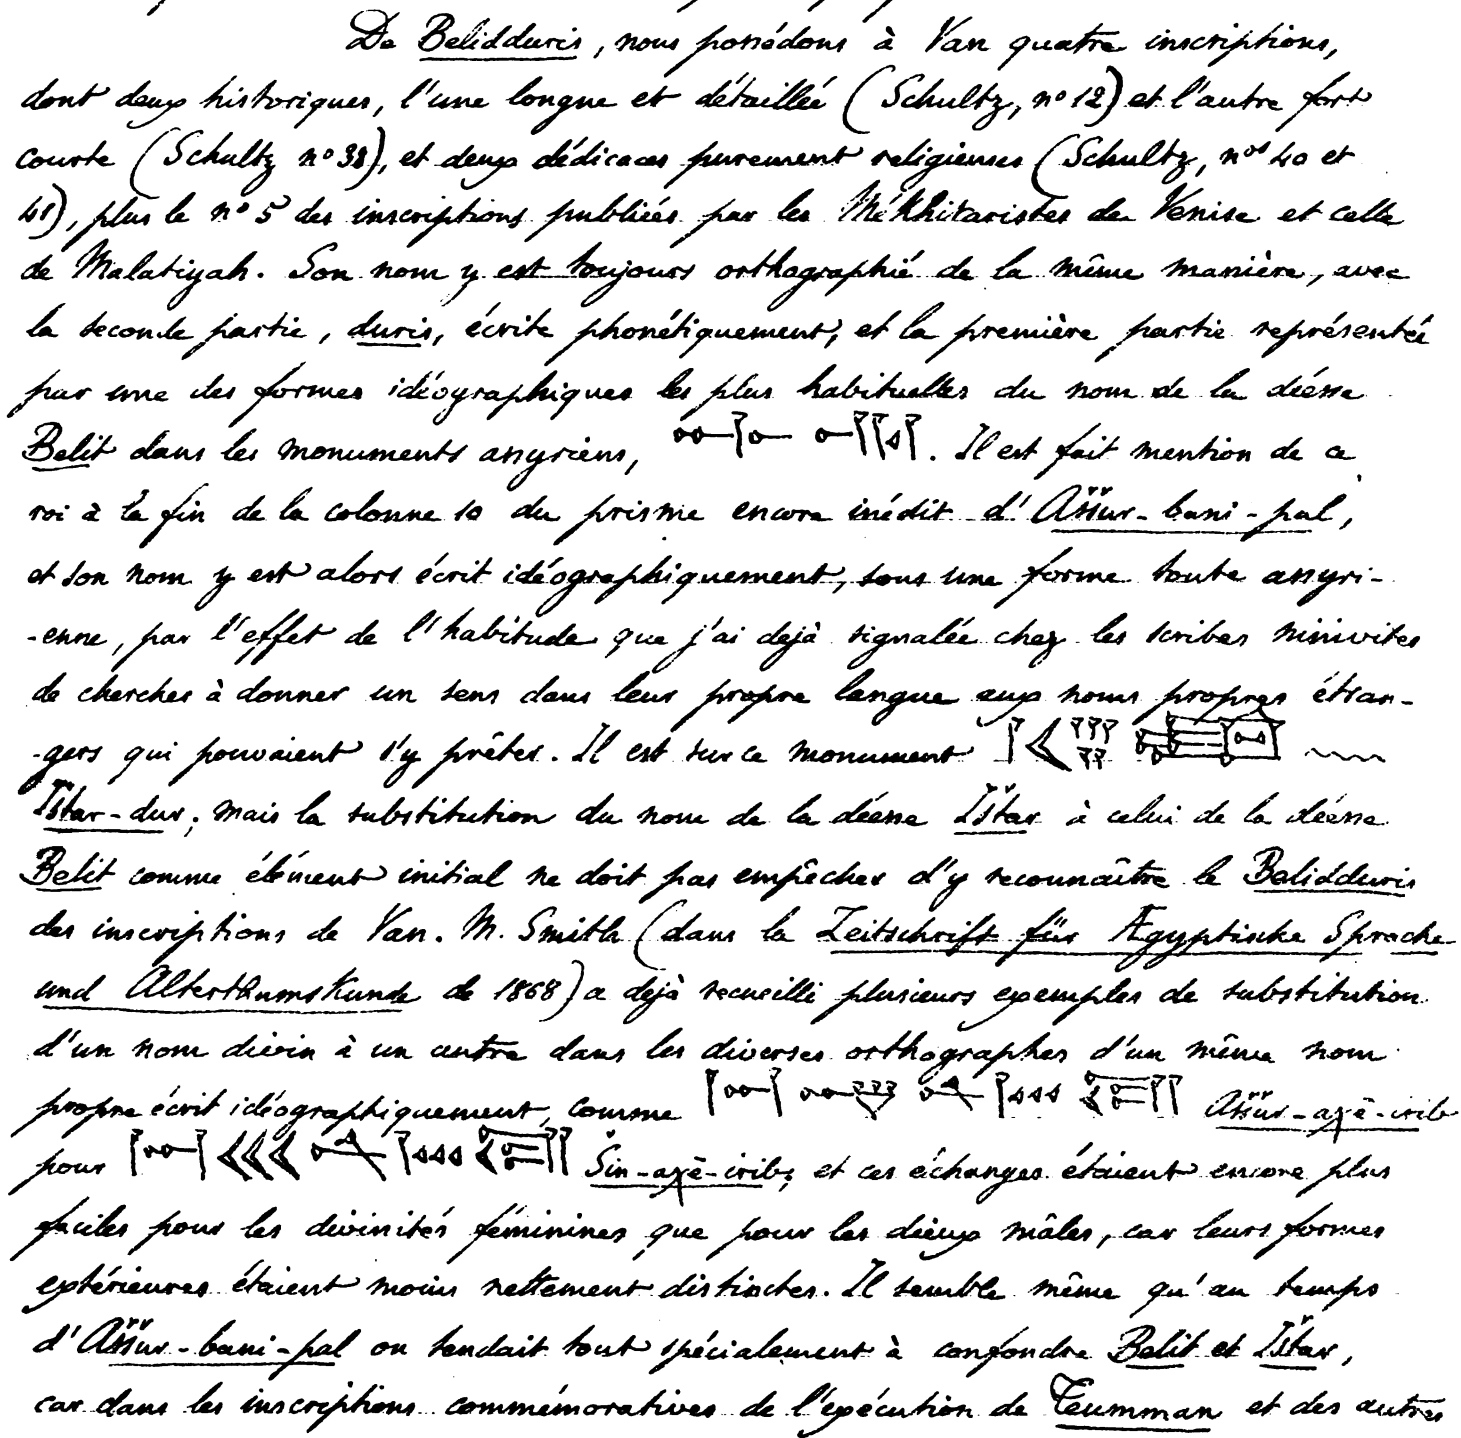 De Belidduris, nous possédons à Van quatre inscriptions,
dont deux historiques, l'une longue et détaillée (Schultz, nº 12) et l'autre fort
courte (Schultz nº 38), et deux dédicaces purement religieuses (Schultz, nºˢ 40 et
41), plus le nº 5 des inscriptions publiées par les Mékhitaristes de Venise et celle
de Malatiyah. Son nom y est toujours orthographié de la même manière, avec
la seconde partie, duris, écrite phonétiquement, et la première partie représentée
par une des formes idéographiques les plus habituelles du nom de la déesse
Belit dans les monuments assyriens, . Il est fait mention de ce
roi à la fin de la colonne 10 du prisme encore inédit d'Aššur-bani-pal,
et son nom y est alors écrit idéographiquement, sous une forme toute assyri-
-enne, par l'effet de l'habitude que j'ai dejà signalée chez les scribes ninivites
de chercher à donner un sens dans leur propre langue aux noms propres étran-
-gers qui pouvaient s'y prêter. Il est sur ce monument
Ištar-dur; mais la substitution du nom de la déesse Ištar à celui de la déesse
Belit comme élément initial ne doit pas empêcher d'y reconnaître le Belidduris
des inscriptions de Van. M. Smith (dans la Zeitschrift für Ægyptische Sprache
und Alterthumskunde de 1868) a dejà recueilli plusieurs exemples de substitution
d'un nom divin à un autre dans les diverses orthographes d'un même nom
propre écrit idéographiquement, comme Aššur-aχē-irib
pour Šin-aχē-irib; et ces échanges étaient encore plus
faciles pour les divinités féminines que pour les dieux mâles, car leurs formes
extérieures étaient moins nettement distinctes. Il semble même qu'au temps
d'Aššur-bani-pal on tendait tout spécialement à confondre Belit et Ištar,
car dans les inscriptions commémoratives de l'exécution de Teumman et des autres